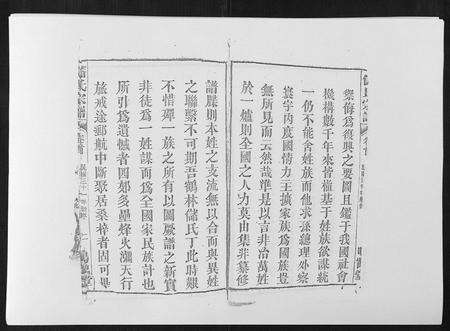 禦侮爲復興之要圖且鑑于我國社會
機構數千年來皆植基于姓族欲謀統
一仍不能舍姓族而他求孫總理外察
寰宇內度國情力主擴家族爲國族豈
無所見而云然哉準是以言非治萬姓
於一爐則全國之人力莫由集非纂修
譜牒則本姓之支流無以合而與異姓
之聯繫不可期吾鶴林氏丁此時艱
不惜殫一族之所有以圖厥譜之新實
非徒爲一姓謀而爲全國家民族計也
所引爲遺憾者四郊多壘烽火滿天行
旅戒途郵航中斷聚居桑梓者固可畢